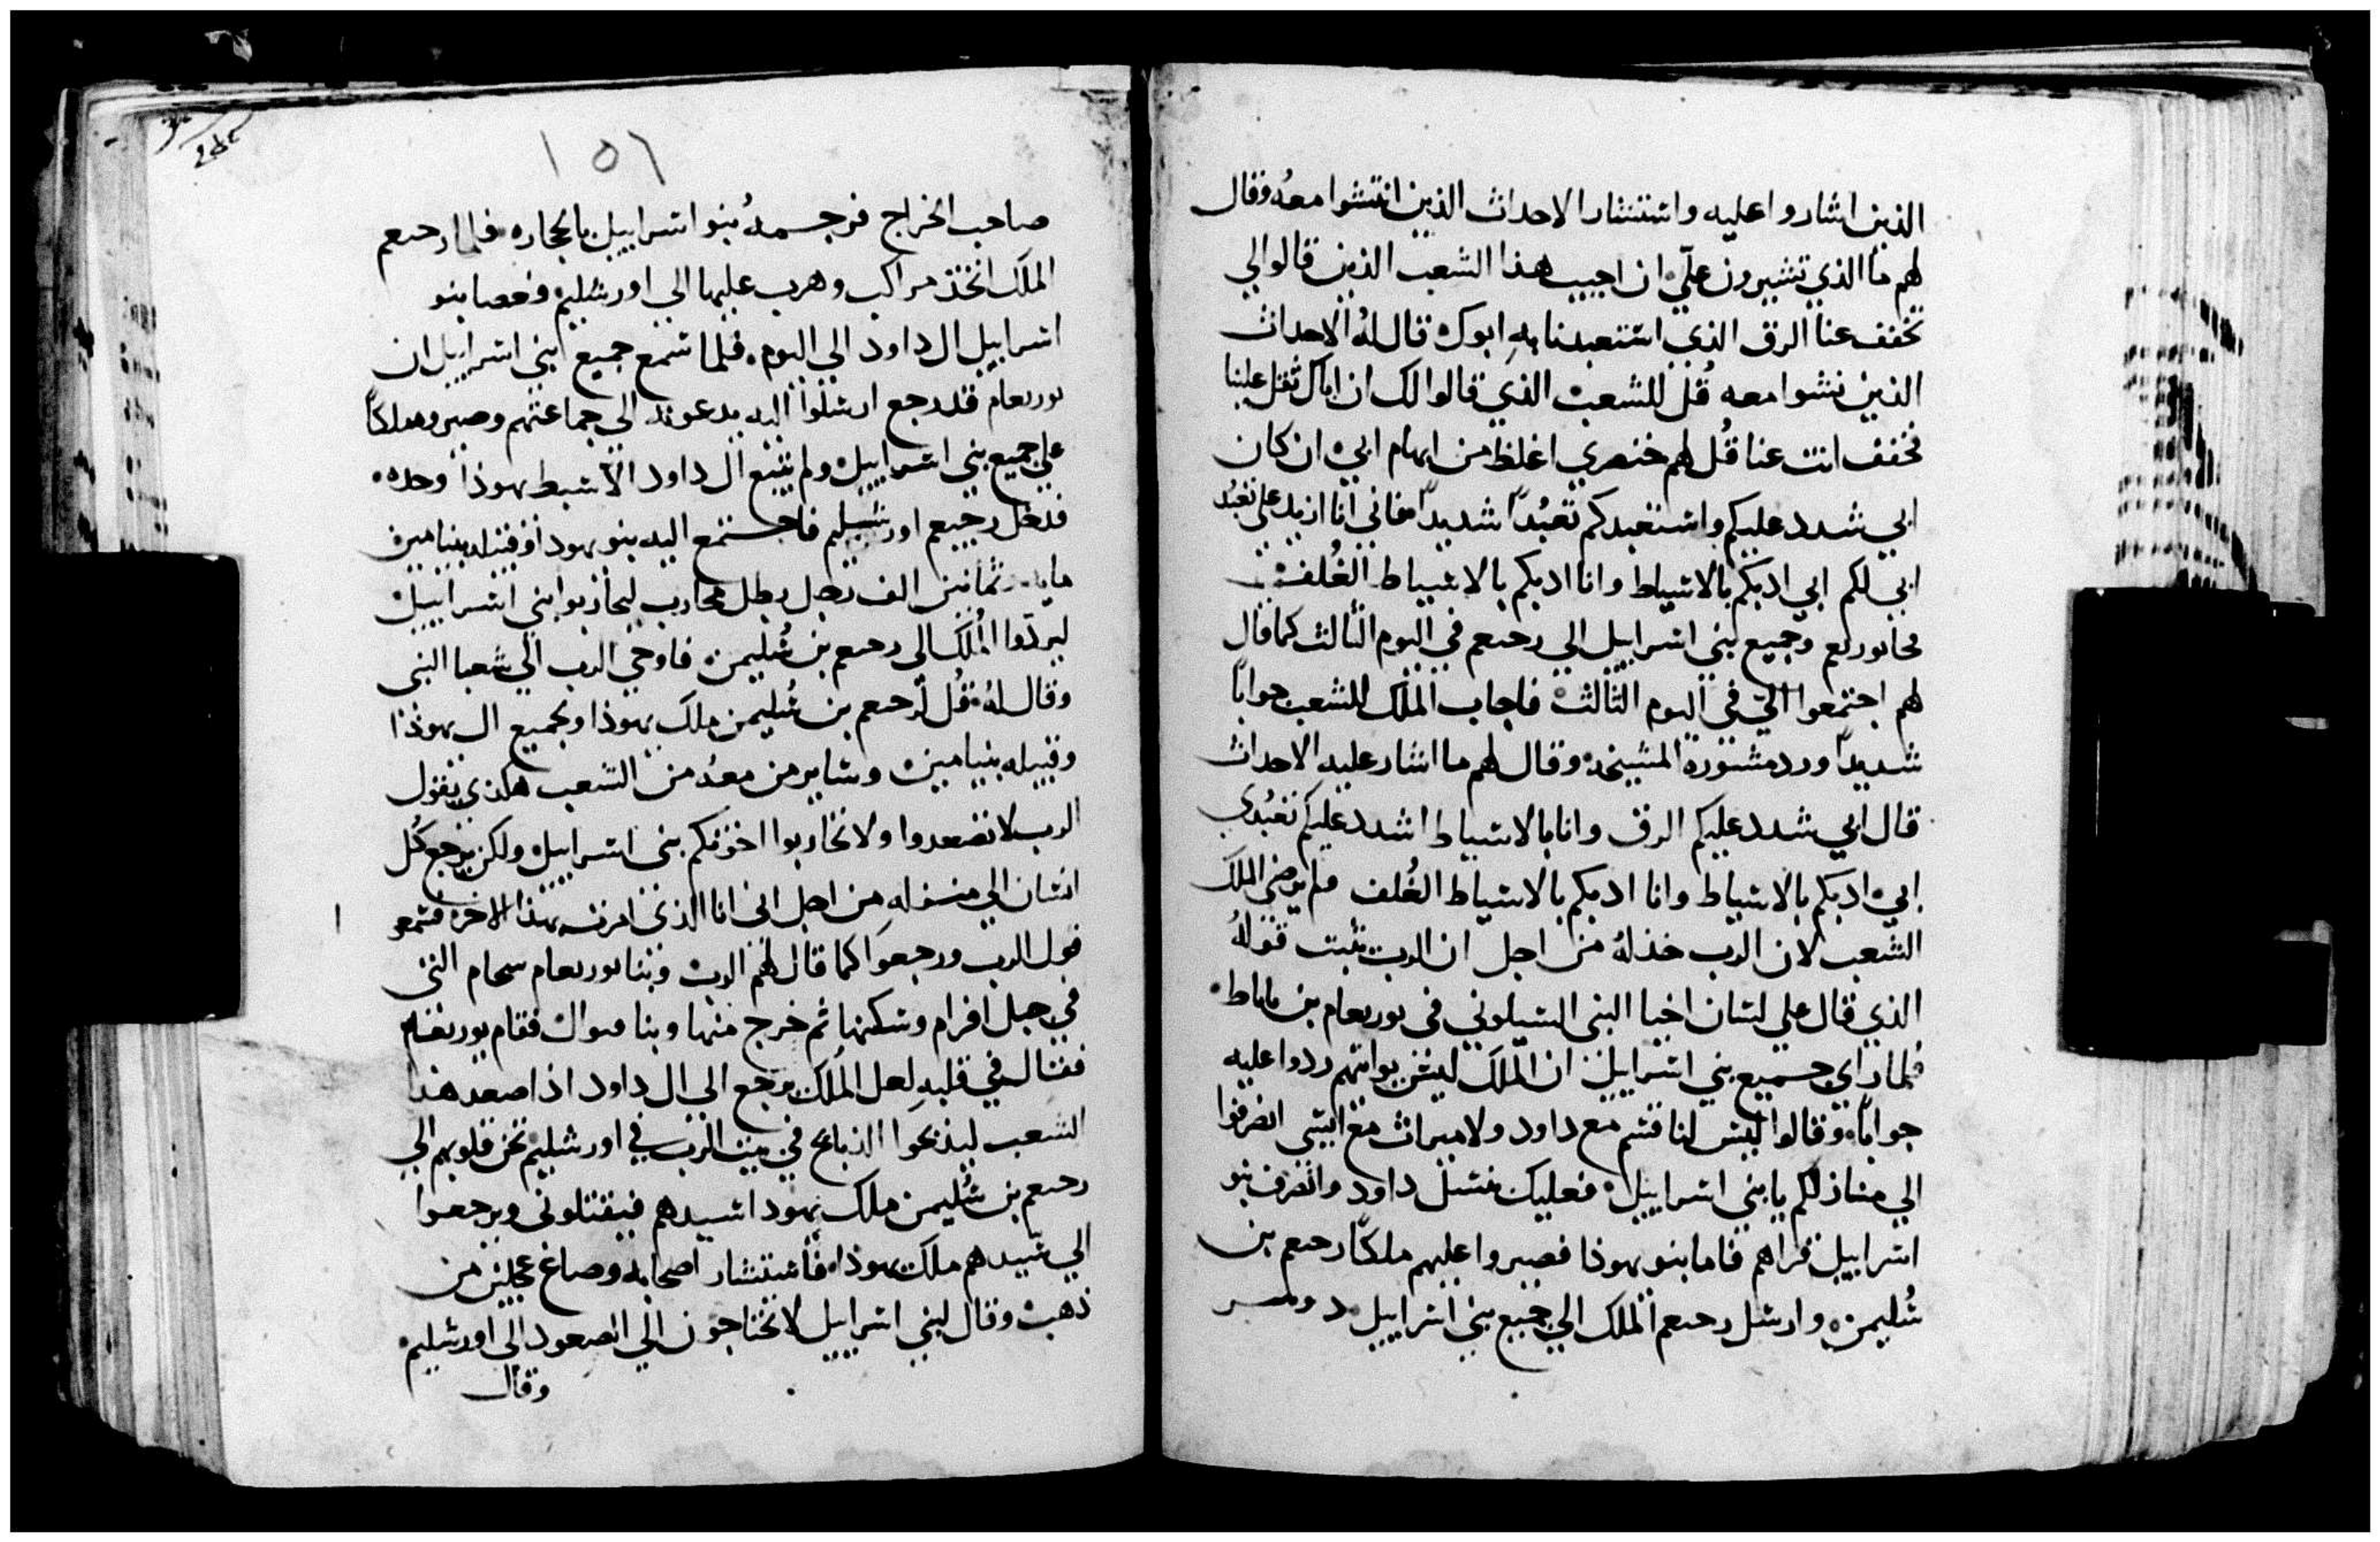 الذين اشاروا عليه واستشار الاحداث الذين انتشوا معه وقال
لهم ما الذي تشيرون علي ان اجيب هذا الشعب الذين قالوا لي
تخفف عنا الرق الذي استعبدنا به ابوك قال له الاحداث
الذين نشوا معه قُل للشعب الذي قالوا لك ان اباك ثقل علينا
فخفف انت عنا قُل لهم خنصري اغلظ من ابهام ابي ان كان
ابي شدد عليكم واستعبدكم تعبُداً شديداً فاني انا ازيد علي تعبُد
ابي لكم ابي ادبكم بالاسياط وانا ادبكم بالاسياط الغُلف
فجا يوربعم وجميع بني اسراييل الي رحبعم في اليوم الثالث كما قال
لهم اجتمعوا الي في اليوم الثالث فاجاب الملك للشعب جواباً
شديداً ورد مشورة المشيخه وقال لهم ما اشار عليه الاحداث
قال ابي شدد عليكم الرق وانا بالاسياط اشدد عليكم تعبُدي
ابي ادبكم بالاسياط وانا ادبكم بالاسياط الغُلف فلم يرضي الملك
الشعب لان الرب خذله من اجل ان الرب يثبت قوله
الذي قال علي لسان اخيا النبي الشيلوني في يوربعام بن ناباط
فلما راي جميع بني اسراييل ان الملك ليس بواتيهم ردوا عليه
جواباً وقالوا ليس لنا قسم مع داود ولا ميراث مع ايشي انصرفوا
الي منازلكم يا بني اسراييل فعليك بنسل داود وانصرف بنو
اسراييل قراهم فاما بنو يهوذا فصيروا عليهم ملكاً رحبعم بن
سُليمن وارسل رحبعم الملك الي جميع بني اسراييل
١٥٦
صاحب الخراج فرجمهُ بنو اسراييل بالحجاره فلما رحبعم
الملك اتخذ مراكب وهرب عليها الي اورشليم فعصا بنو
اسراييل ال داود الي اليوم فلما سمع جميع بني اسراييل ان
يوربعام قد رجع ارسلوا اليه يدعونه الي جماعتهم وصيروه ملكاً
علي جميع بني اسراييل ولم يتبع ال داود الا سبط يهوذا وحده
فدخل رحبعم اورشليم فاجتمع اليه بنو يهوذا وقبيله بنيامين
مايه وثمانين الف رجل بطل محارب ليحاربوا بني اسراييل
ليردوا المُلك الي رحبعم بن سُليمن فاوحي الرب الي شعيا النبي
وقال لهُ قُل لرحبعم بن سُليمن ملك يهوذا ولجميع ال يهوذا
وقبيله بنيامين وساير من معهُ من الشعب هكذي يقول
الرب لا تصعدوا ولا تحاربوا اخوتكم بني اسراييل ولكن يرجع كُل
انسان الي منزله من اجل اني انا الذي امرت بهذا الامر فسمعو
قول الرب ورجعوا كما قال لهم الرب وبنا يوربعام سحام التي
في جبل افرام وسكنها ثم خرج منها وبنا فنوال فقام يوربعام
فقال في قلبه لعل المُلك يرجع الي ال داود اذا صعد هذا
الشعب ليذبحوا الذبايح في بيت الرب في اورشليم تحن قلوبهم الي
رحبعم بن سُليمن ملك يهودا سيدهم فيقتلوني ويرجعوا
الي سيدهم ملك يهوذا فاستشار اصحابه وصاغ عجلين من
ذهب وقال لبني اسراييل لا تحتاجون الي الصعود الي اورشليم
وقال